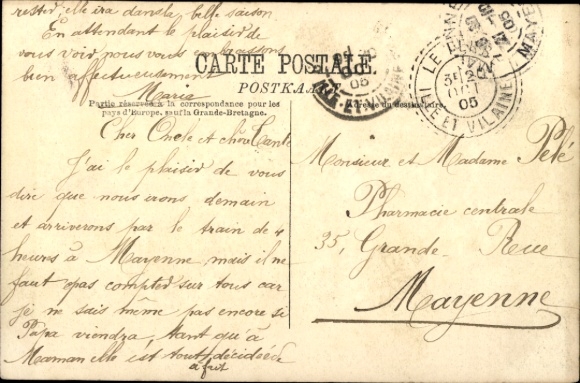 rester, elle ira dans la belle saison.
En attendant le plaisir de
vous voir nous vous embrassons
bien affectueusement
Maria
CARTE POSTALE.
POSTKAART
Partie réservée à la correspondance pour les
pays d'Europe, sauf la Grande-Bretagne.
Adresse du destinataire.
Cher Oncle et chère Tante
J'ai le plaisir de vous
dire que nous irons demain
et arriverons par le train de 4
heures à Mayenne mais il ne
faut pas compter sur tous car
je ne sais même pas encore si
Papa viendra, tant qu'à
Maman elle est tout à fait décidée à
LE
25
OCT
05
ILLE ET VILAINE
MAYENNE
Monsieur et Madame Pelé
Pharmacie centrale
35, Grande Rue
Mayenne